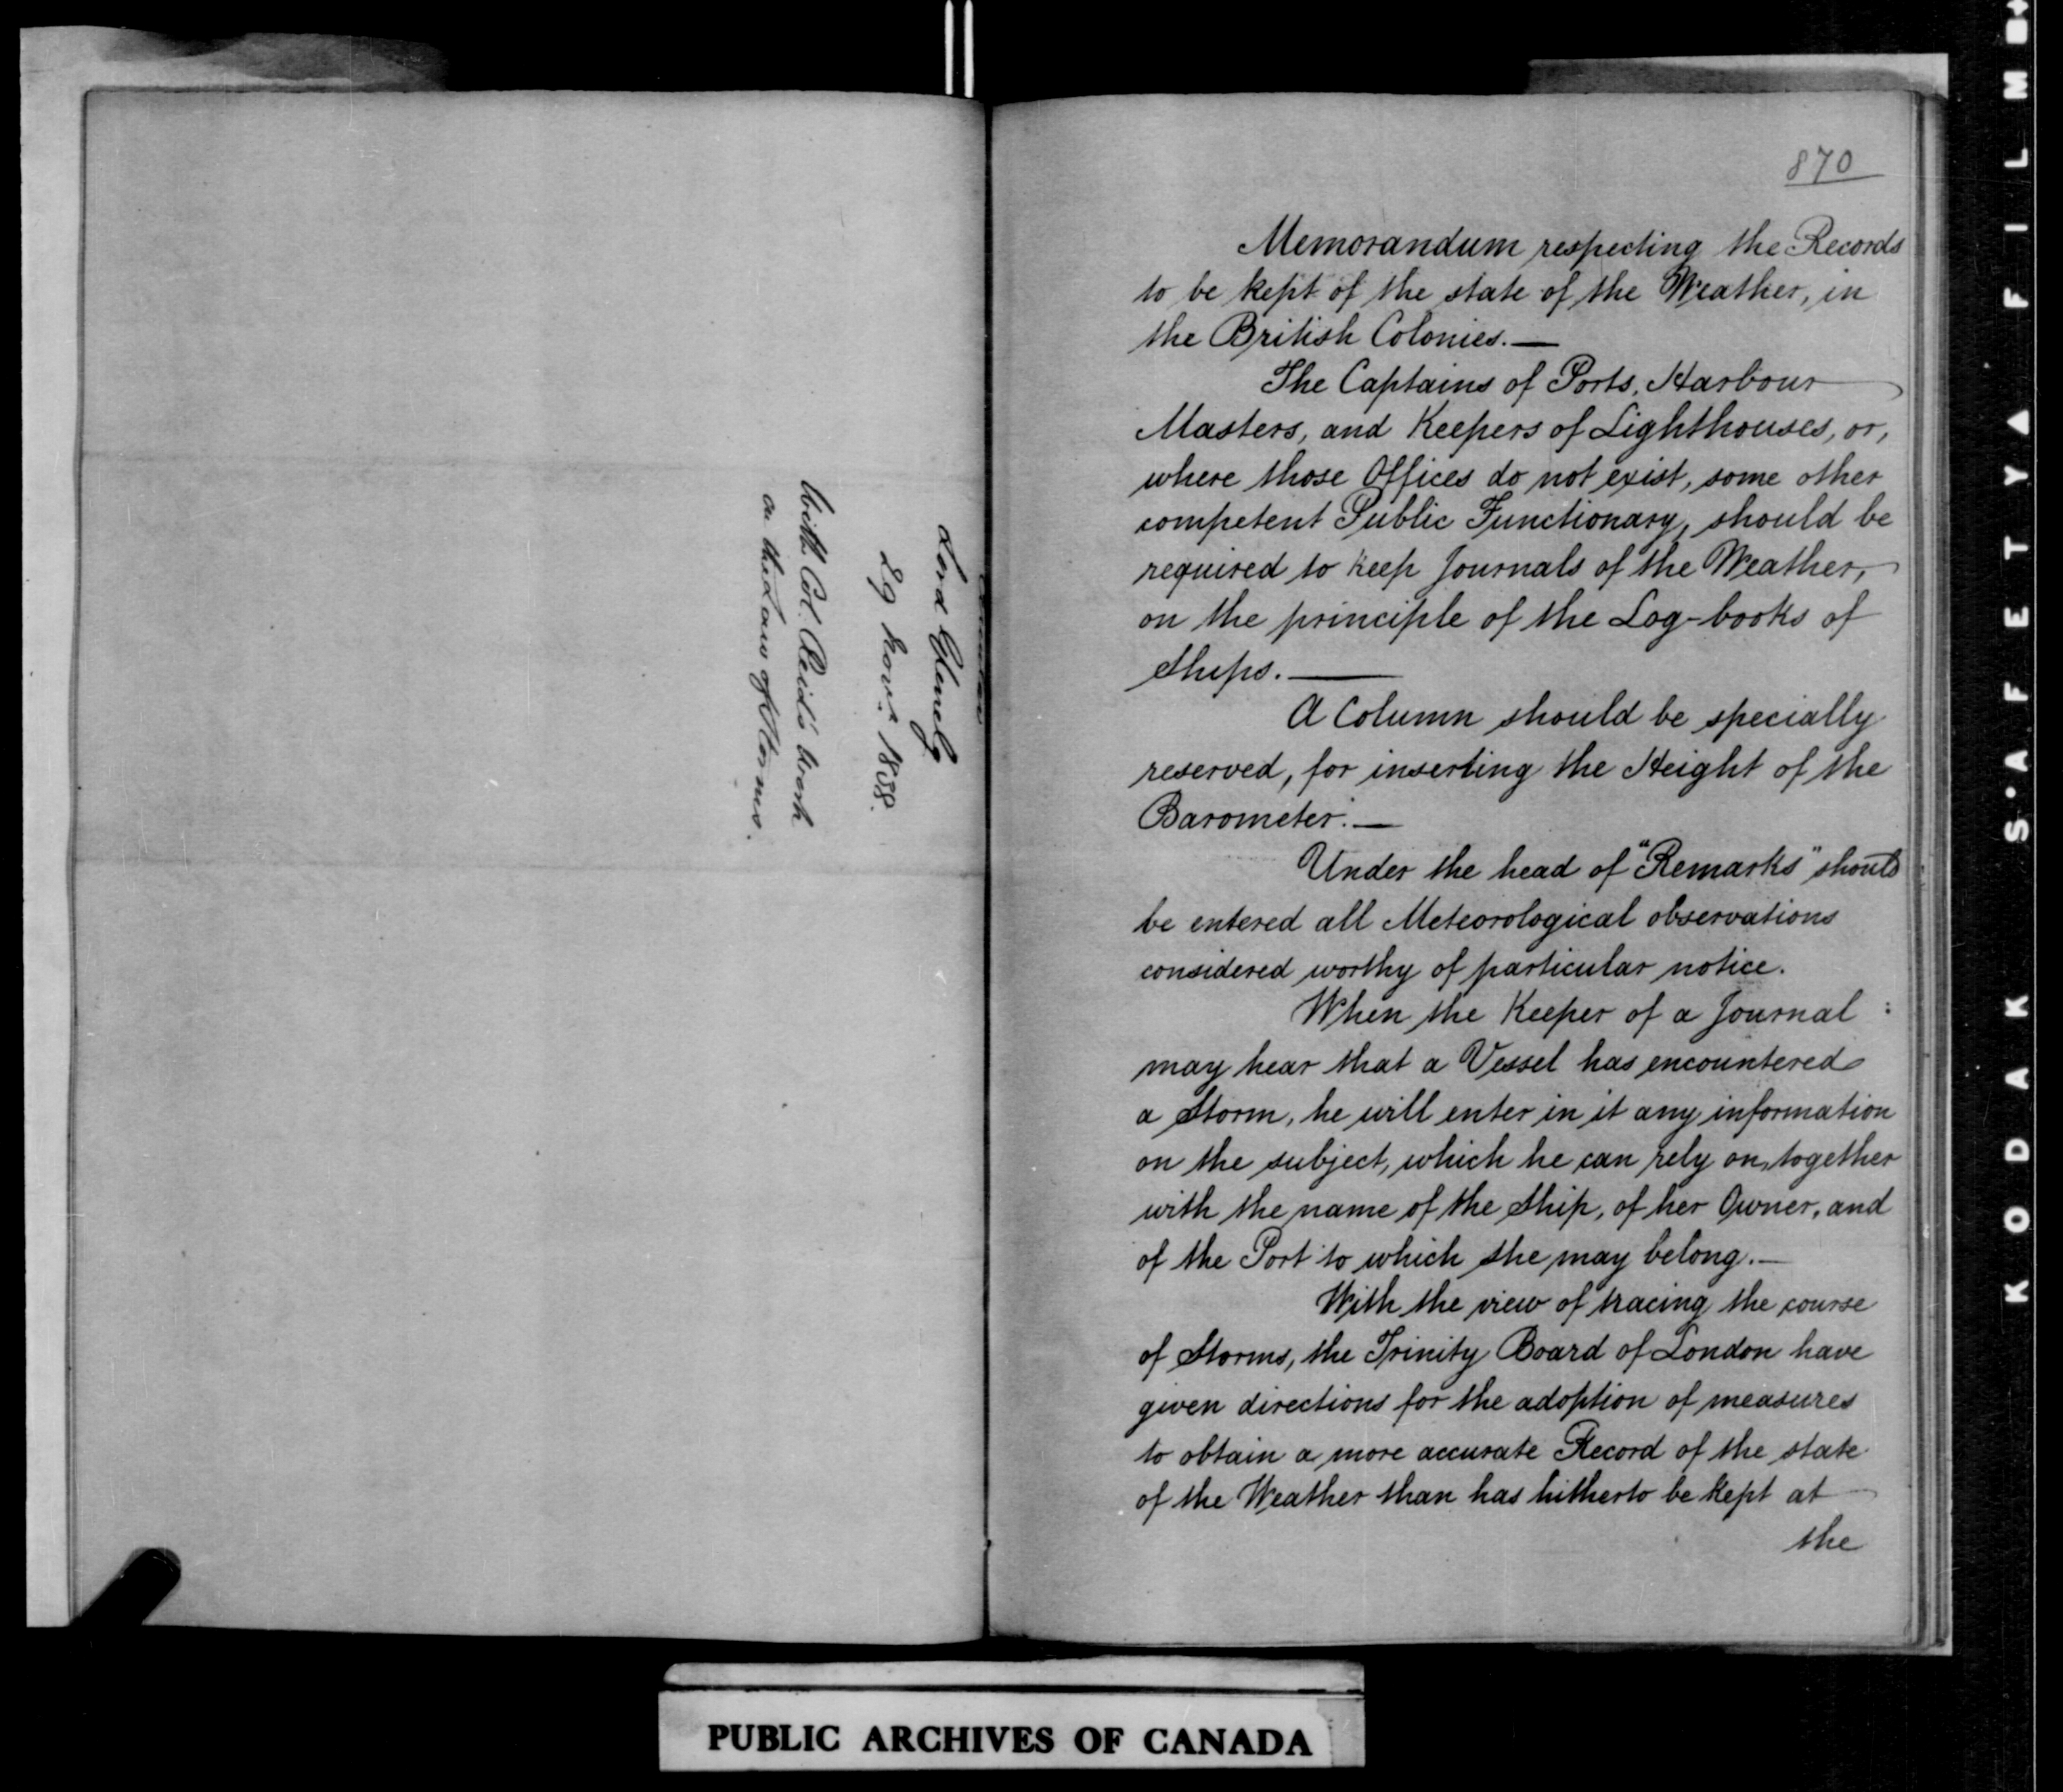 Circular
Lord Glenelg
29 Novr. 1838.
With Col. Reid's work
on the Law of Storms.
870
Memorandum respecting the Records
to be kept of the state of the Weather, in
the British Colonies.—
The Captains of Ports, Harbour
Masters, and Keepers of Lighthouses, or,
where those Offices do not exist, some other
competent Public Functionary, should be
required to keep Journals of the Weather,
on the principle of the Log-books of
Ships.—
A Column should be specially
reserved, for inserting the Height of the
Barometer.—
Under the head of "Remarks" should
be entered all Meteorological observations
considered worthy of particular notice.
When the Keeper of a Journal
may hear that a Vessel has encountered
a Storm, he will enter in it any information
on the subject, which he can rely on, together
with the name of the Ship, of her Owner, and
of the Port to which she may belong.—
With the view of tracing the course
of Storms, the Trinity Board of London have
given directions for the adoption of measures
to obtain a more accurate Record of the state
of the Weather than has hitherto be kept at
the
PUBLIC ARCHIVES OF CANADA
KODAK S'AFETY FILM